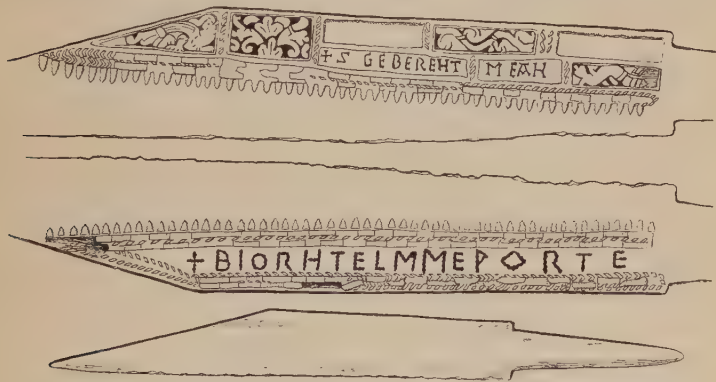 + S GEBEREHT MEAH
+BIORHTELMMEPORTE